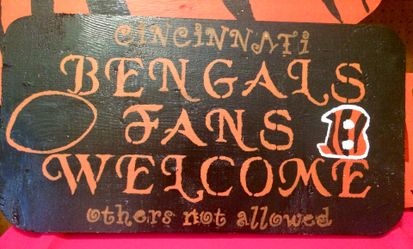 CINCINNATI
BENGALS
FANS B
WELCOME
others not allowed